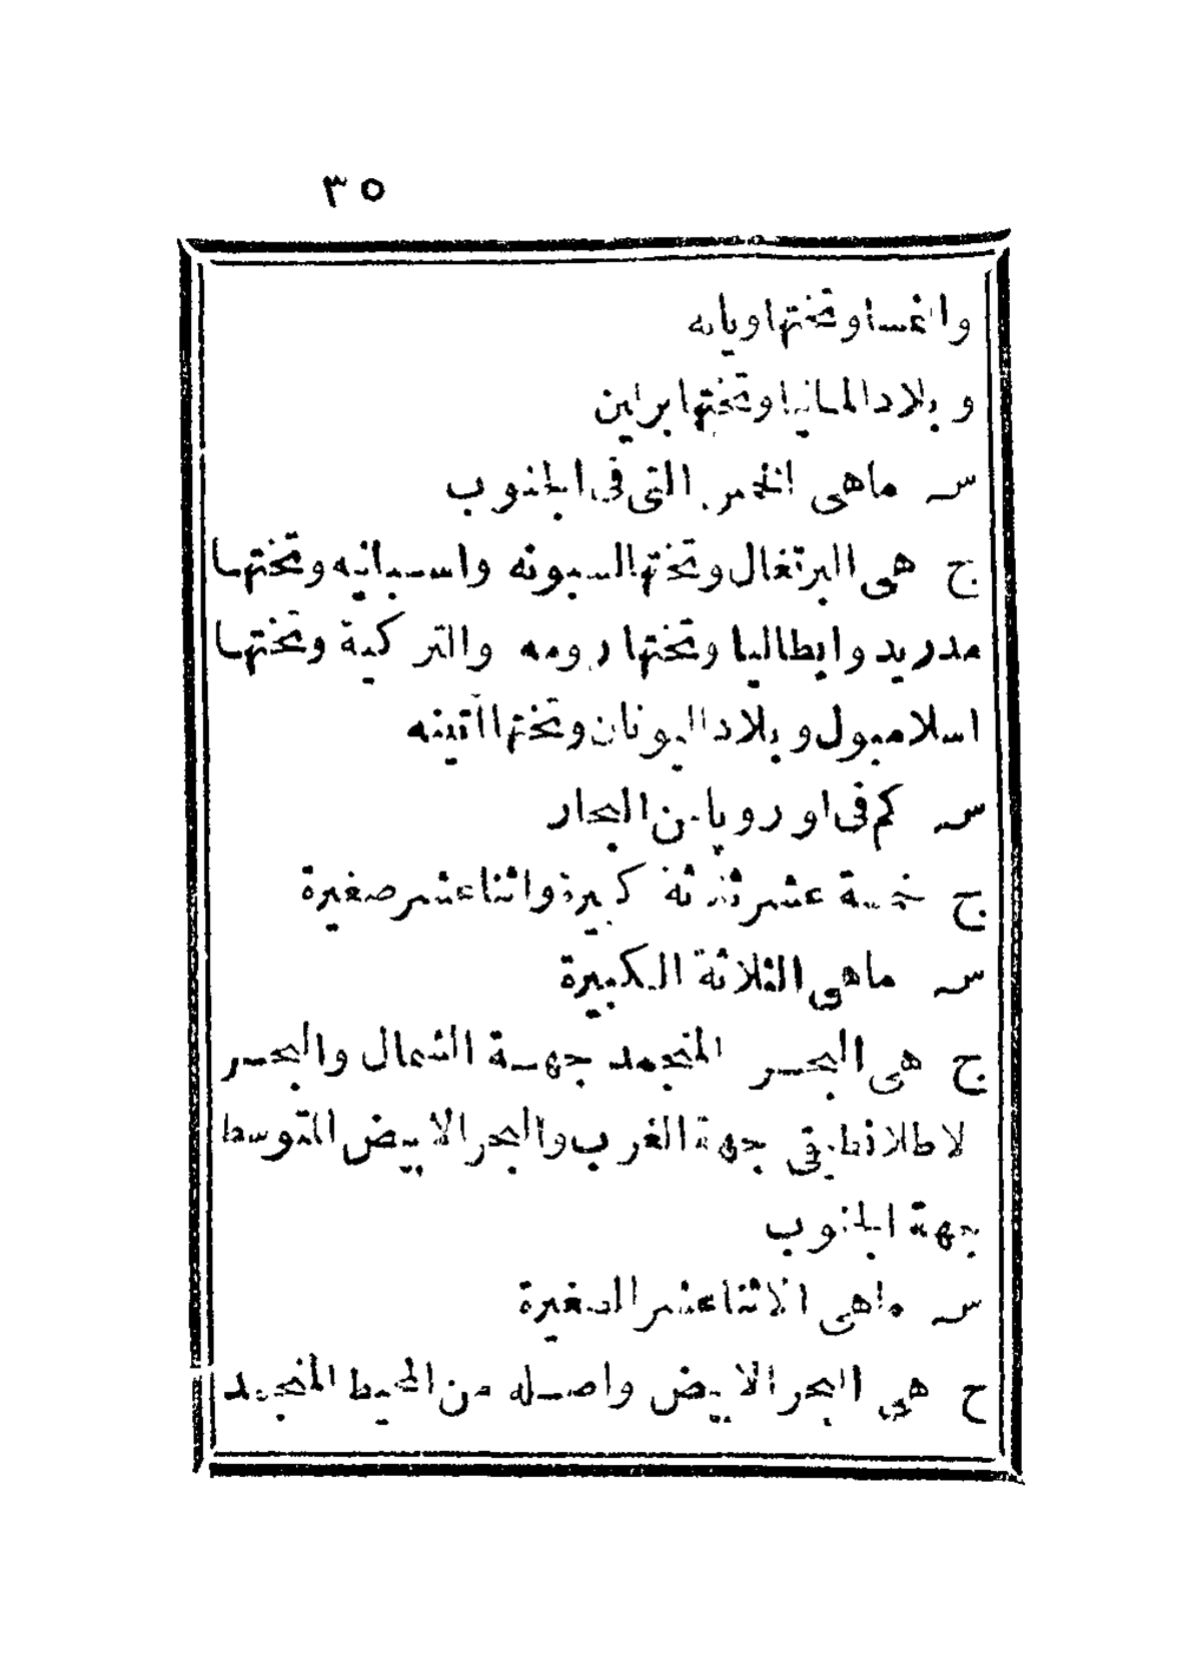 ٣٥
والنمسا وتختها ويانه
وبلاد المانيا وتختها برلين
س ماهى الخمس التى فى الجنوب
ج هى البرتغال وتختها لسبونه واسبانيه وتختها
مدريد وايطاليا وتختها رومه والتركية وتختها
اسلامبول وبلاد اليونان وتختها اتينه
س كم فى اوروپا من البحار
ج خمسة عشر ثلاثة كبيرة واثنا عشر صغيرة
س ماهى الثلاثة الكبيرة
ج هى البحر المنجمد جهة الشمال والبحر
لاطلانطيقى جهة الغرب والبحر الابيض المتوسط
جهة الجنوب
س ماهى الاثنا عشر الصغيرة
ج هى البحر الابيض واصله من المحيط المنجمد